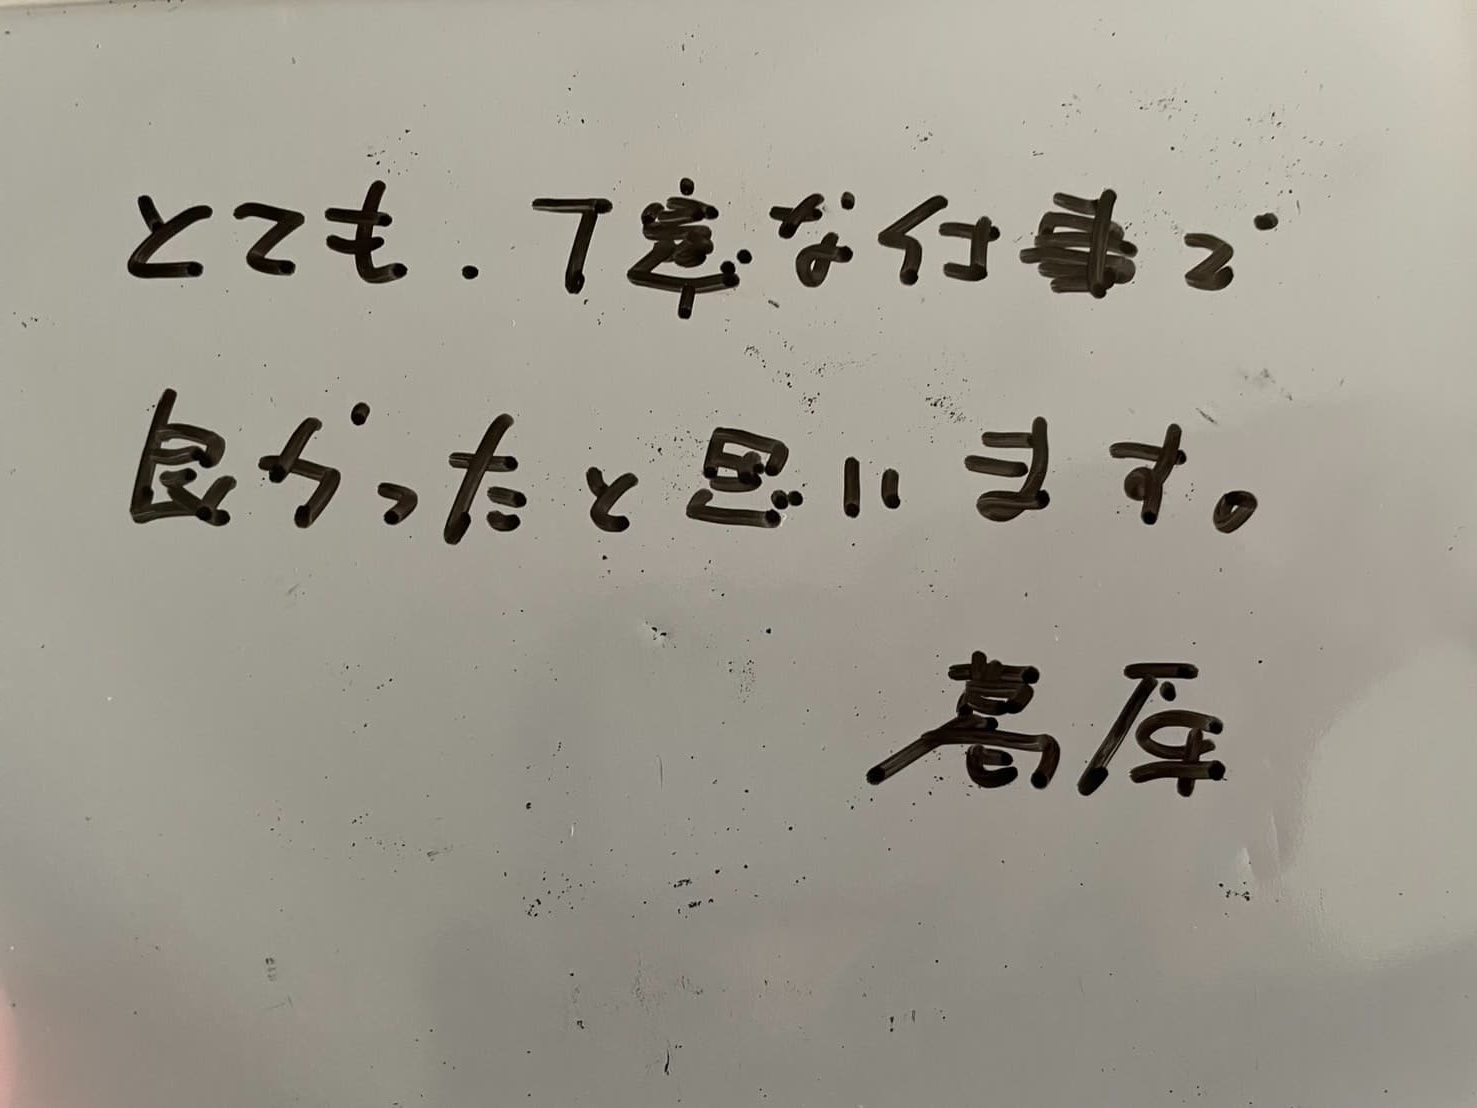 とても.丁寧な仕事で
良かったと思います。
高座